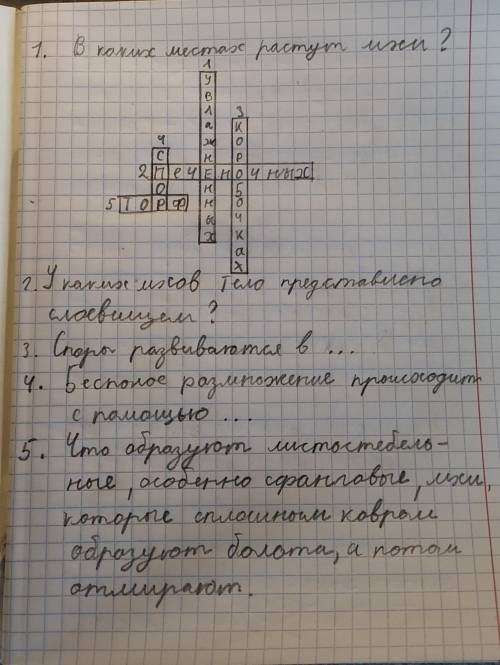 1. В каких местах растут мхи?
1
У
В
Л
а
ж
н
Е
н
н
ы
х
3
К
О
Р
О
Б
О
Ч
К
а
х
4
С
П
О
Р
2 П е ч Е н О ч ных
5 Т О Р Ф
2. У каких мхов тело представлено
слоевищем?
3. Споры развиваются в ...
4. Бесполое размножение происходит
с помощью ...
5. Что образуют листостебель-
ные, особенно сфагновые, мхи,
которые сплошным ковром
образуют болота, а потом
отмирают.